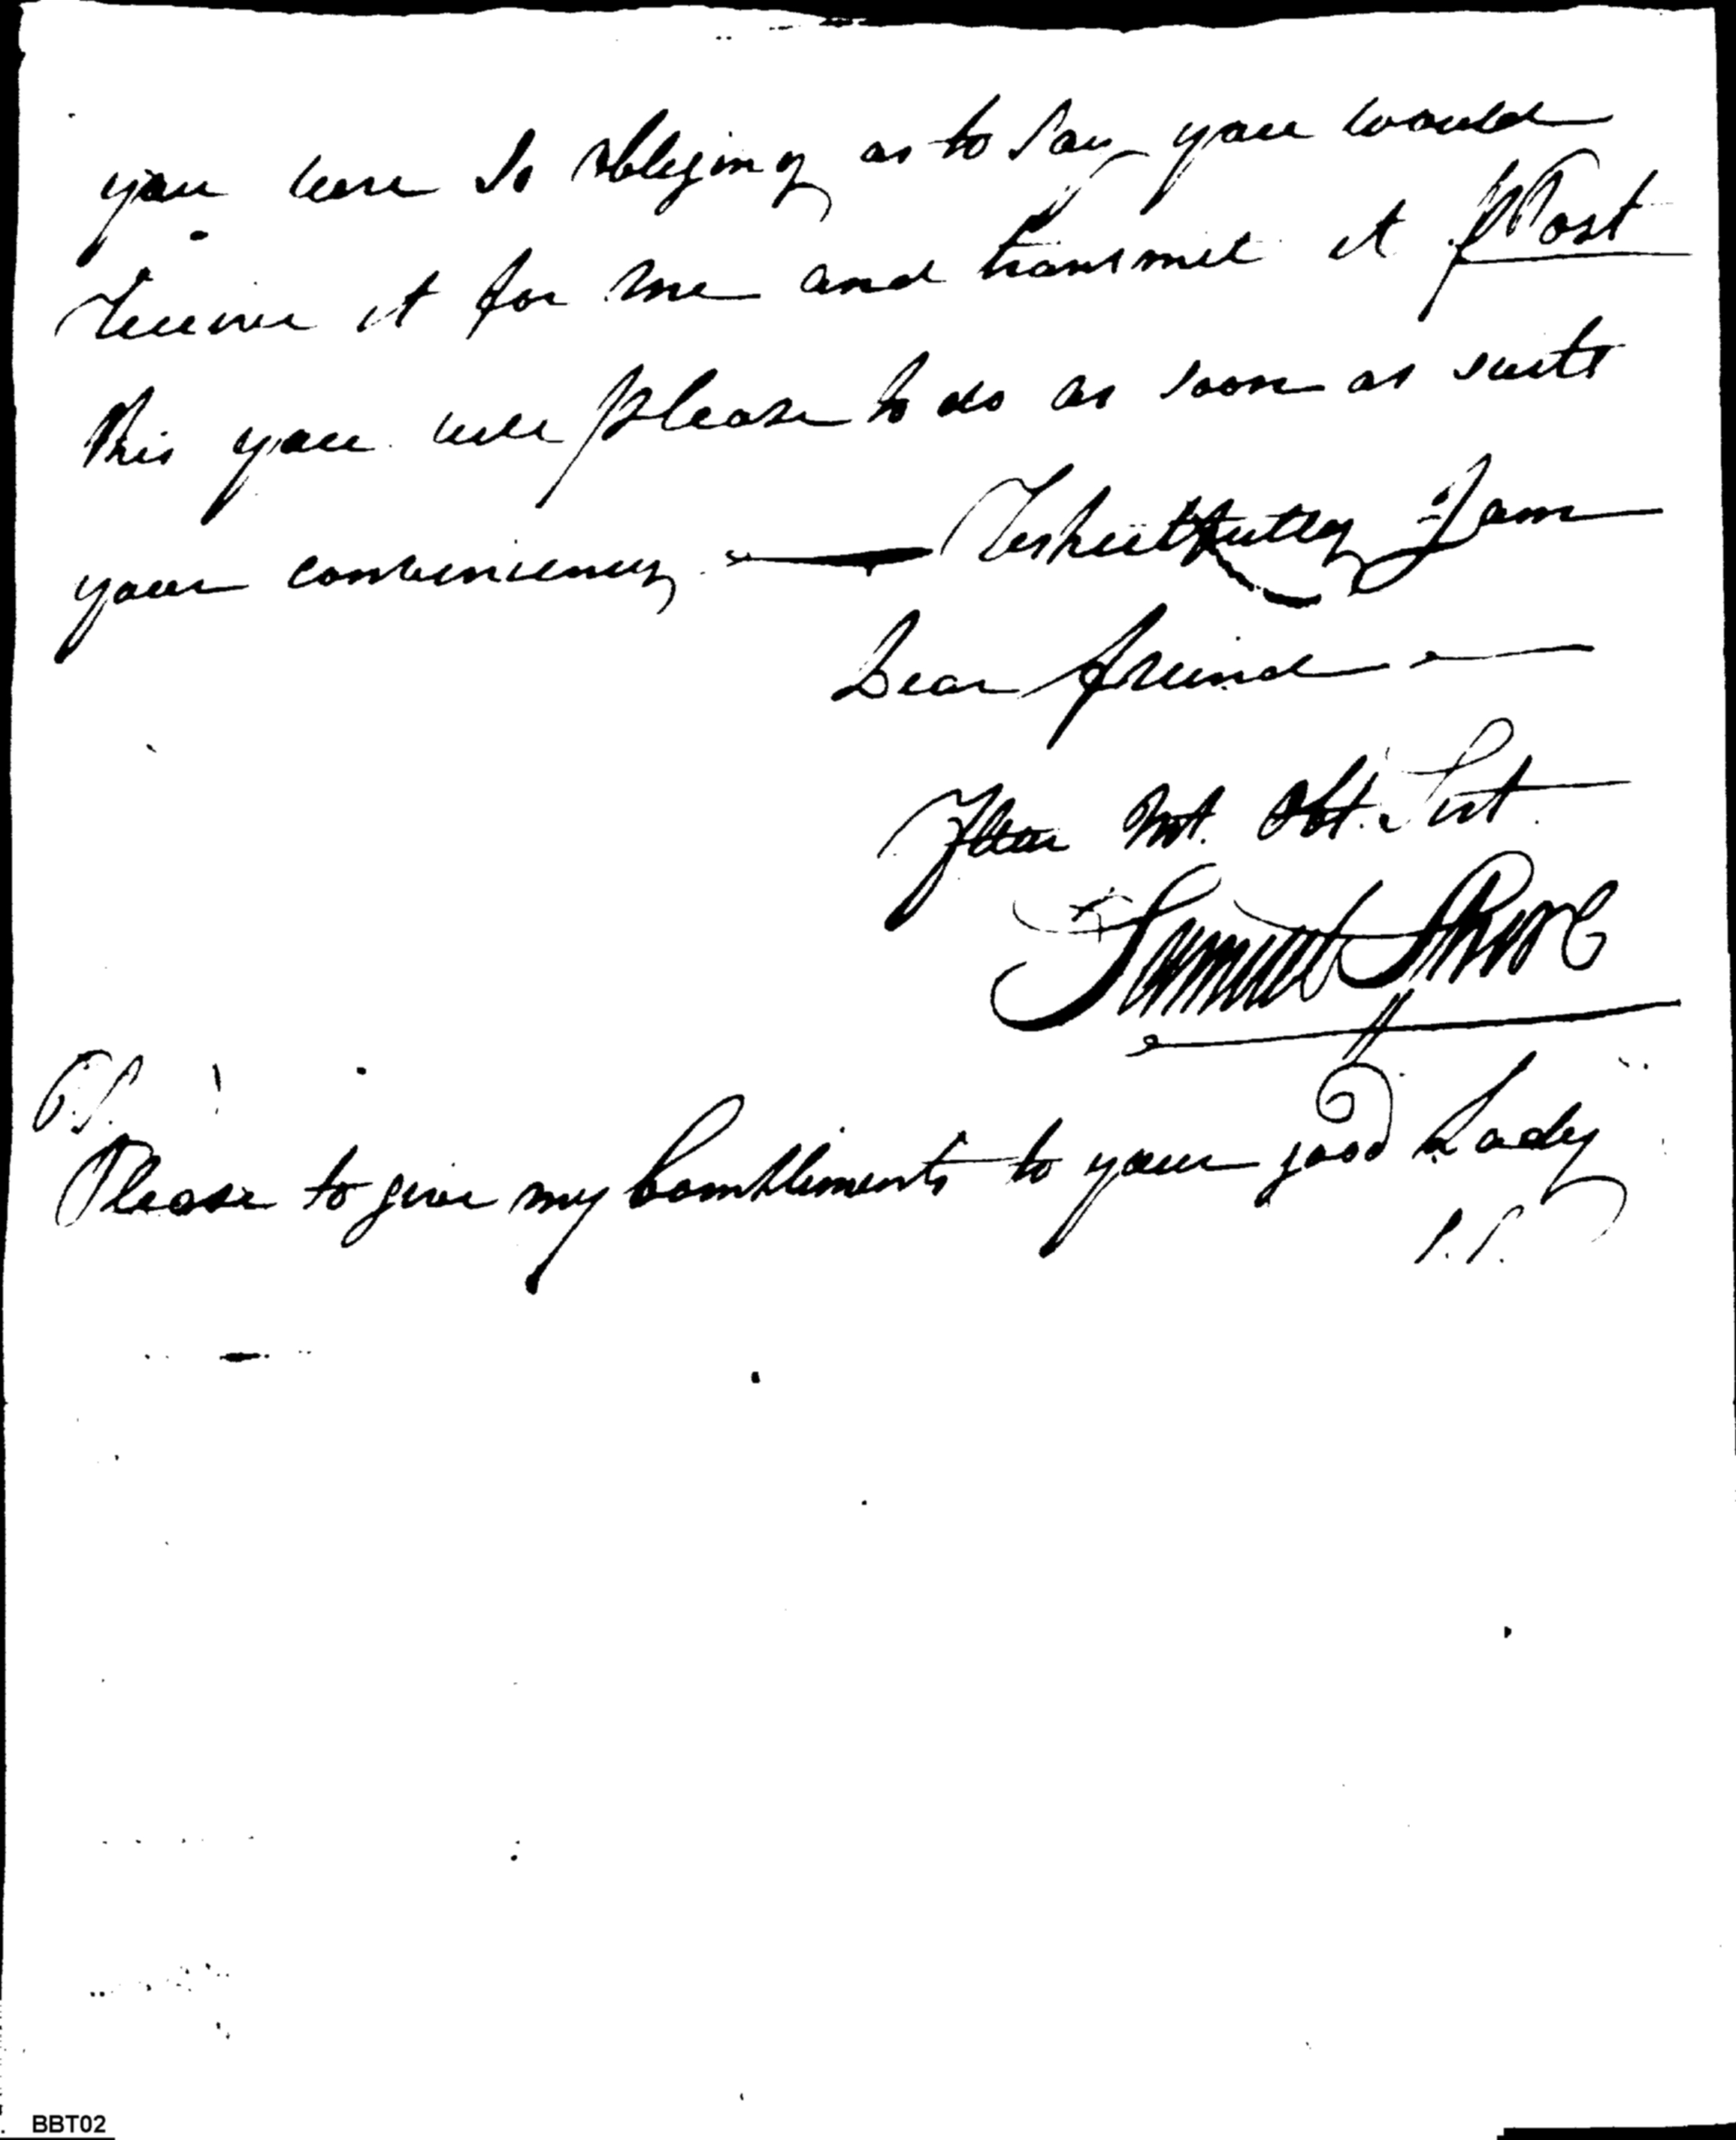 you were so obliging as to say you would
receive it for me and transmit it Post
this you will please to do as soon as suits
your conveniency — Respectfully I am
Dear friend —
Your Mt. Obt. Svt.
Samuel
P.S.
Please to give my Compliments to your good Lady
S.S.
BBT02